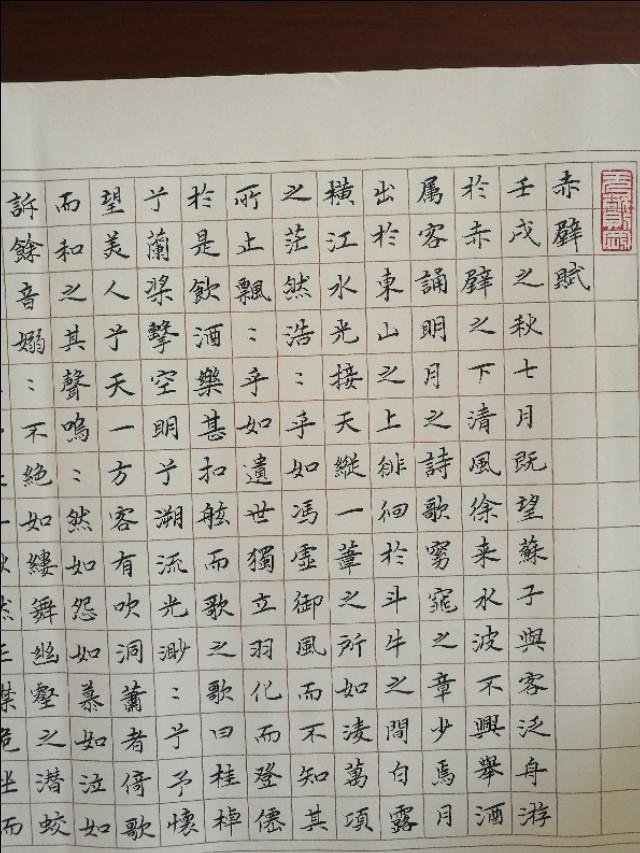 赤壁賦
壬戌之秋七月既望蘇子與客泛舟游
於赤壁之下清風徐来水波不興舉酒
属客誦明月之詩歌窈窕之章少焉月
出於東山之上徘徊於斗牛之間白露
横江水光接天縱一葦之所如凌萬項
之茫然浩:乎如馮虛御風而不知其
所止飄:乎如遺世獨立羽化而登僊
於是飲酒樂甚扣舷而歌之歌曰桂棹
兮蘭槳擊空明兮溯流光渺:兮予懷
望美人兮天一方客有吹洞蕭者倚歌
而和之其聲嗚:然如怨如慕如泣如
訴餘音嫋:不絶如縷舞幽壑之潜蛟